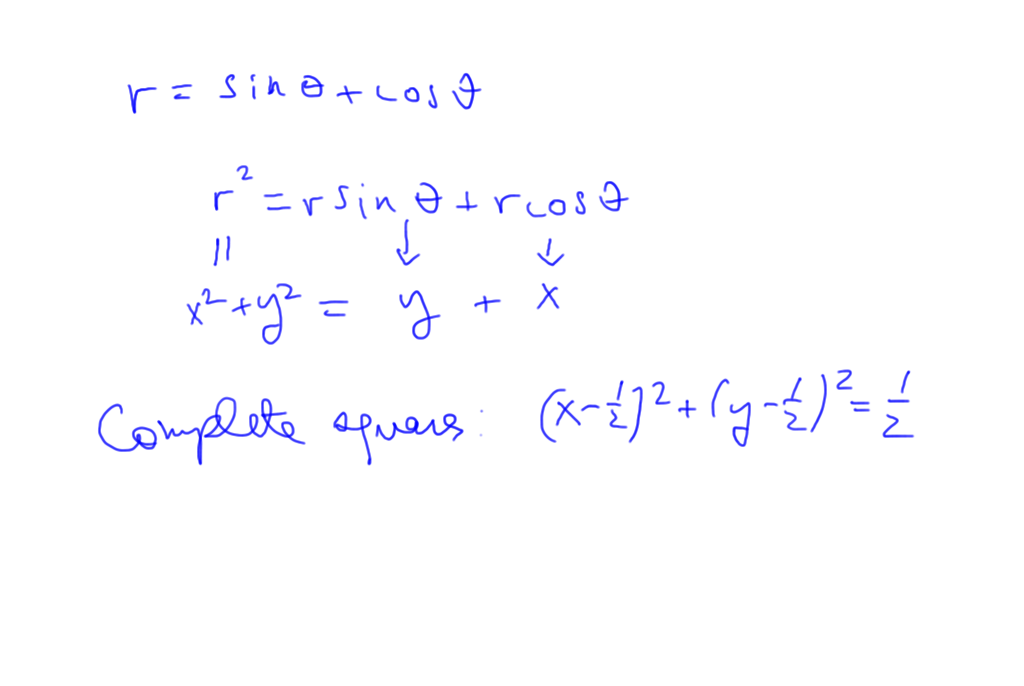 r = sin θ + cos θ
r² = r sin θ + r cos θ
|| ↓ ↓
x² + y² = y + x
Complete square: (x - 1/2)² + (y - 1/2)² = 1/2